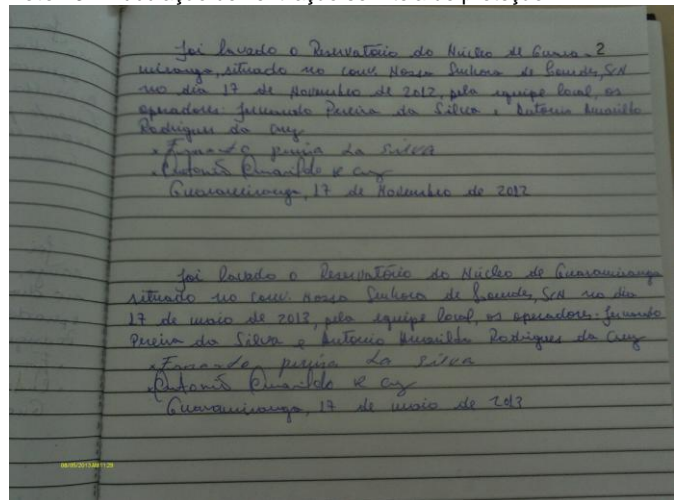 Foi lavado o Reservatório do Núcleo de Guara- 2
miranga, situado no conv. Nossa Senhora de Lourdes, S/N
no dia 17 de Novembro de 2012, pela equipe local, os
operadores: Fernando Pereira da Silva e Antonio Amarildo
Rodrigues da Cruz
Fernando pereira da Silva
Antonio Amarildo R Cruz
Guaramiranga, 17 de Novembro de 2012
Foi lavado o Reservatório do Núcleo de Guaramiranga
situado no conv. Nossa Senhora de Lourdes, S/N no dia
17 de maio de 2013, pela equipe local, os operadores: Fernando
Pereira da Silva e Antonio Amarildo Rodrigues da Cruz
Fernando pereira da Silva
Antonio Amarildo R Cruz
Guaramiranga, 17 de maio de 2013